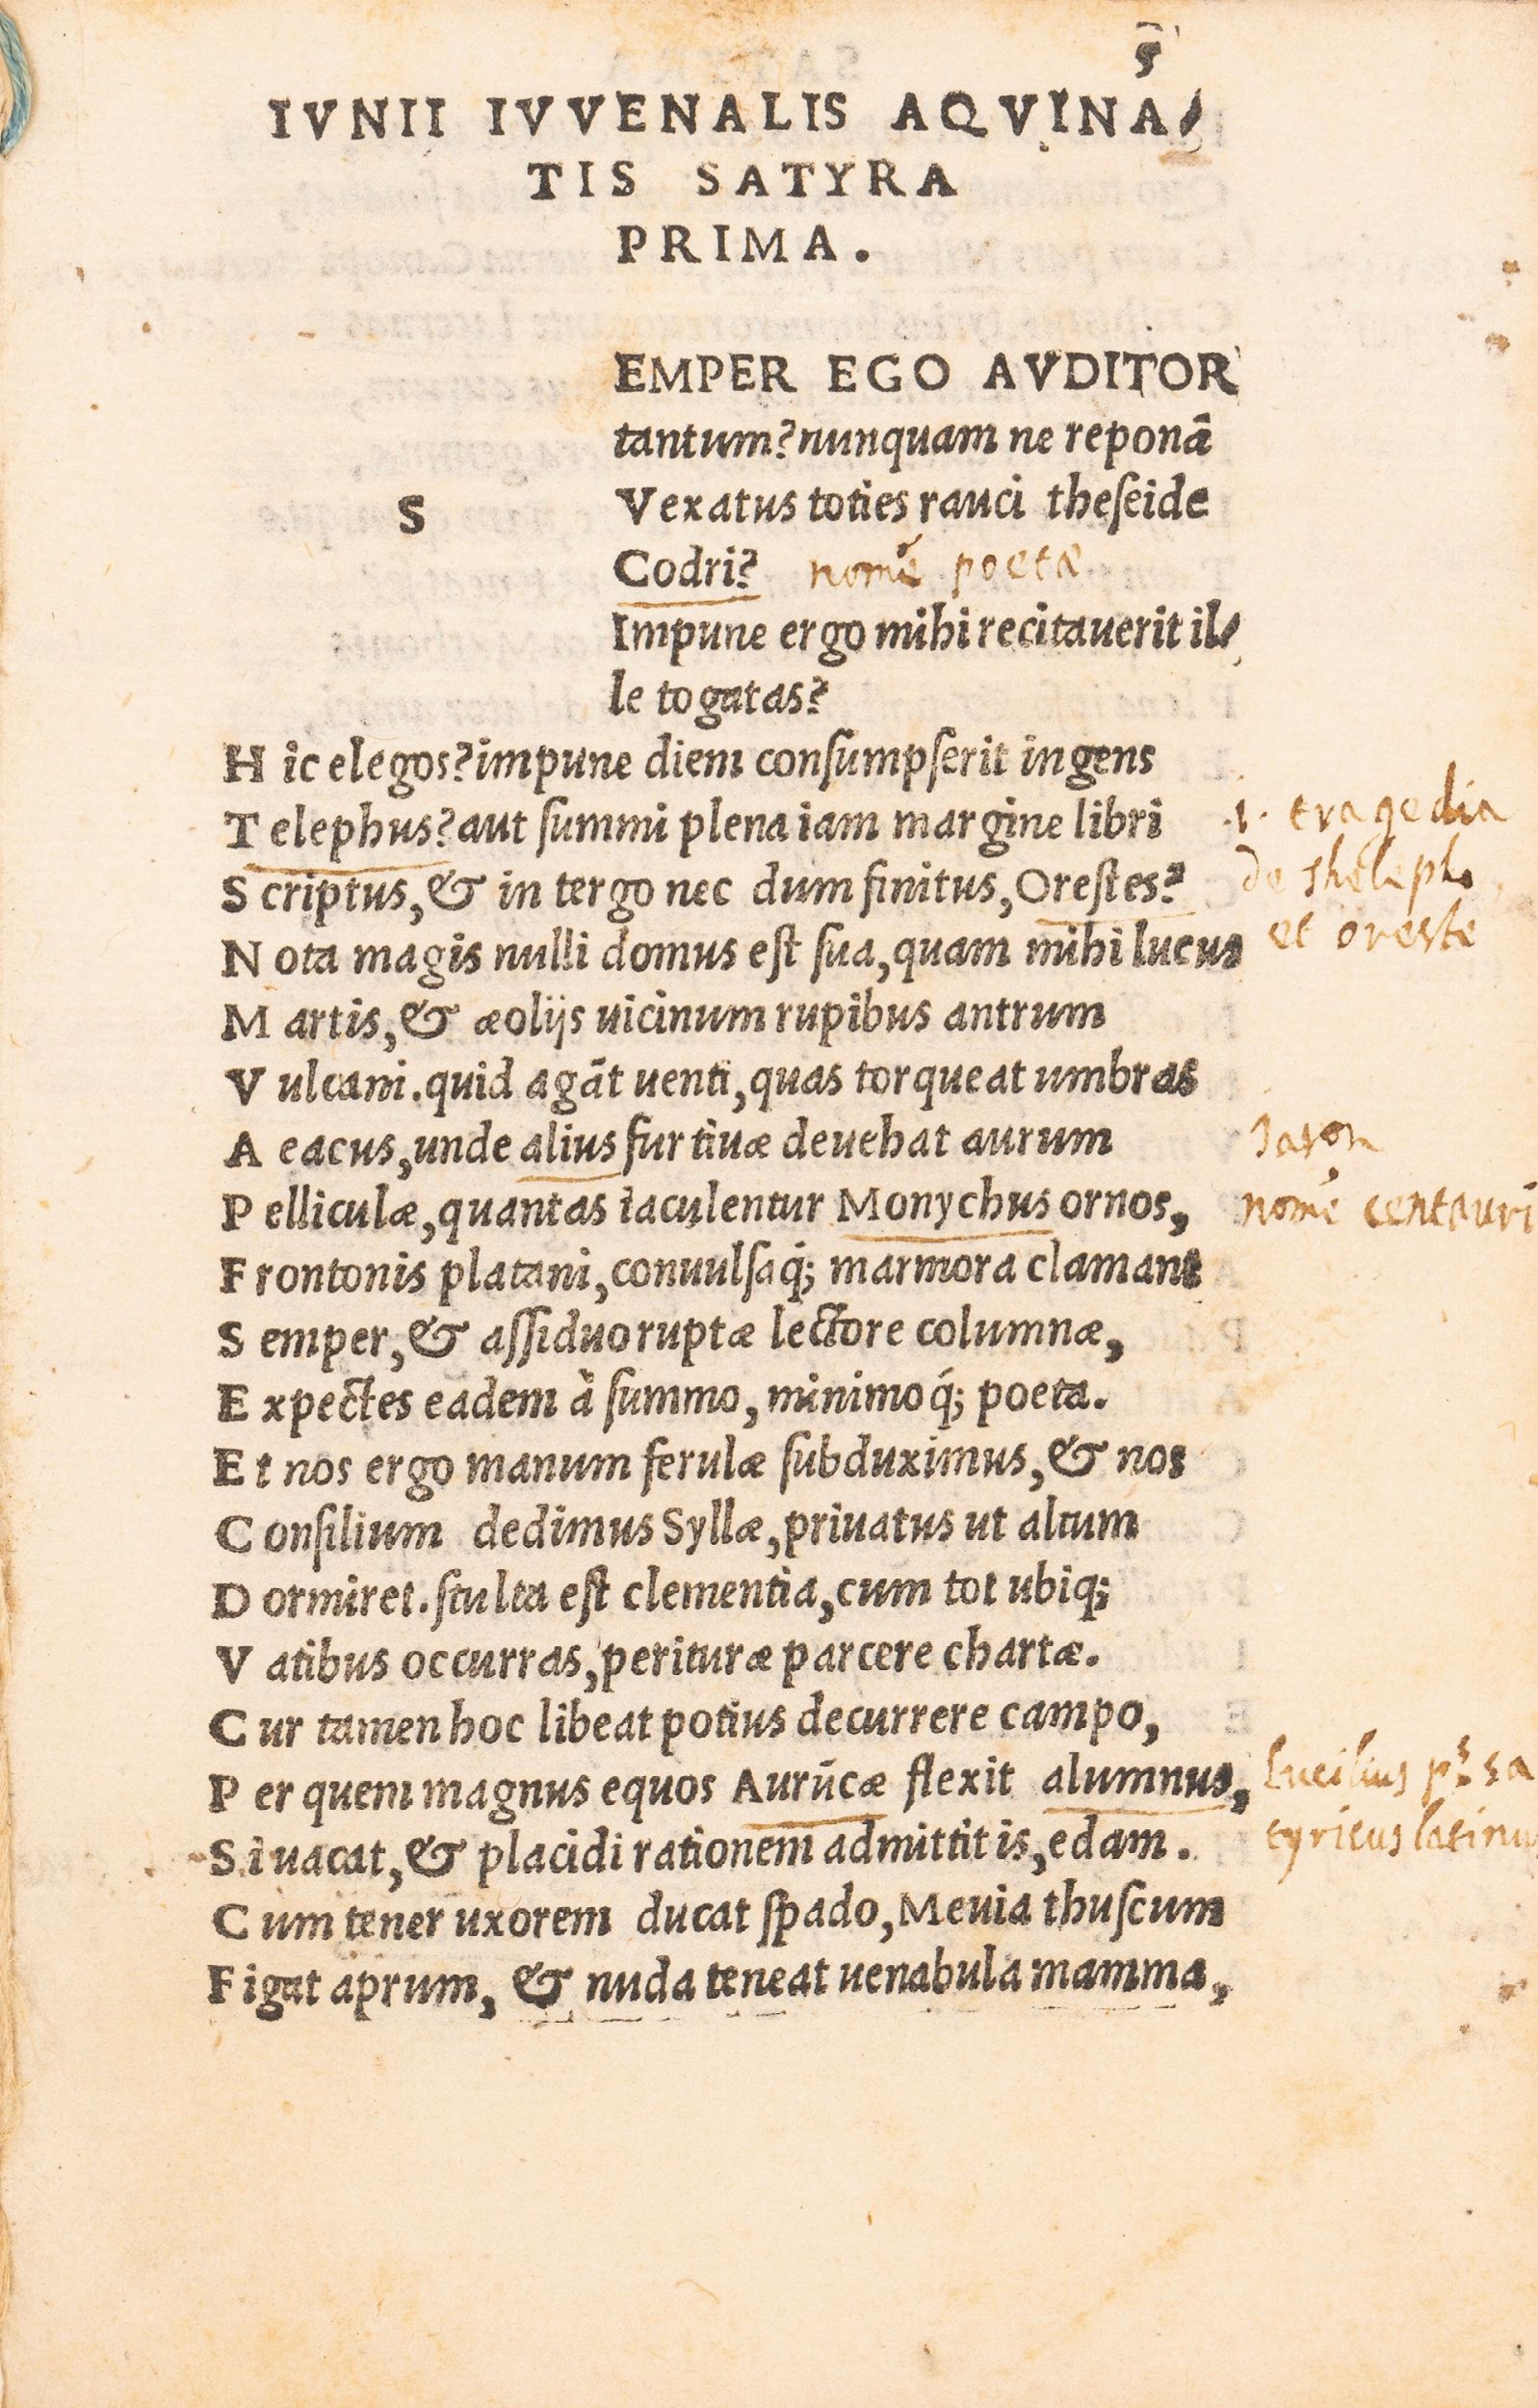 IVNII IVVENALIS AQVINA/
TIS SATYRA
PRIMA.
S
EMPER EGO AVDITOR
tantum? nunquam ne reponā
Vexatus toties rauci theſeide
Codri? nomē poetæ
Impune ergo mihi recitauerit il/
le togatas?
H ic elegos? impune diem conſumpſerit ingens
T elephus? aut ſummi plena iam margine libri .i. tragedia
S criptus, & in tergo nec dum finitus, Oreſtes? de thelepho
N ota magis nulli domus eſt ſua, quam mihi lucus et oreste
M artis, & æolijs uicinum rupibus antrum
V ulcani. quid agāt uenti, quas torqueat umbras
A eacus, unde alius furtiuæ deuehat aurum Iason
P elliculæ, quantas iaculentur Monychus ornos, nomē centauri
F rontonis platani, conuulſaq́; marmora clamant
S emper, & aſſiduo ruptæ lectore columnæ,
E xpectes eadem à ſummo, minimoq́; poeta.
E t nos ergo manum ferulæ ſubduximus, & nos
C onſilium dedimus Syllæ, priuatus ut altum
D ormiret. ſtulta eſt clementia, cum tot ubiq;
V atibus occurras, perituræ parcere chartæ.
C ur tamen hoc libeat potius decurrere campo,
P er quem magnus equos Aurūcæ flexit alumnus, Lucilius pˢ. sa
S i uacat, & placidi rationem admittitis, edam. tyricus latinus
C um tener uxorem ducat ſpado, Meuia thuſcum
F igat aprum, & nuda teneat uenabula mamma,